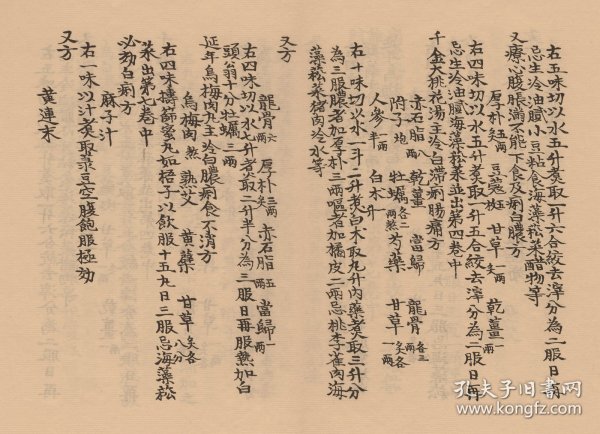 右五味切以水五升煮取一升六合絞去滓分為二服日再
忌生冷油膩小豆粘食海藻菘菜醋物等
又療心腹脹滿不能下食及痢白膿方
厚朴炙 豆蔻 甘草炙 乾薑
右四味切以水五升煮取一升五合絞去滓分為二服日再
忌生冷油膩海藻菘菜並出第四卷中
千金大桃花湯主冷白滯痢腸痛方
赤石脂 乾薑 當歸 龍骨
附子炮 牡蠣 芍藥 甘草
人參 白术
右十味切以水一斗二升煮白术取九升內藥煮取三升分
為三服膿者加厚朴三兩嘔者加橘皮二兩忌桃李雀肉海
藻菘菜猪肉冷水等
又方
龍骨六兩 厚朴三兩 赤石脂五兩 當歸一兩
右四味切以水七升煮取二升半分為三服日再服熱加白
頭翁十分牡蠣三兩
延年烏梅肉丸主冷白膿痢食不消方
烏梅肉熬 熟艾 黃蘗 甘草
右四味擣篩蜜丸如梧子以飲服十五丸日三服忌海藻菘
菜出第七卷中
必効白痢方
麻子汁
右一味以汁煮取菉豆空腹飽服極効
又方
黃連末
孔夫子旧书网
www.kongfz.com